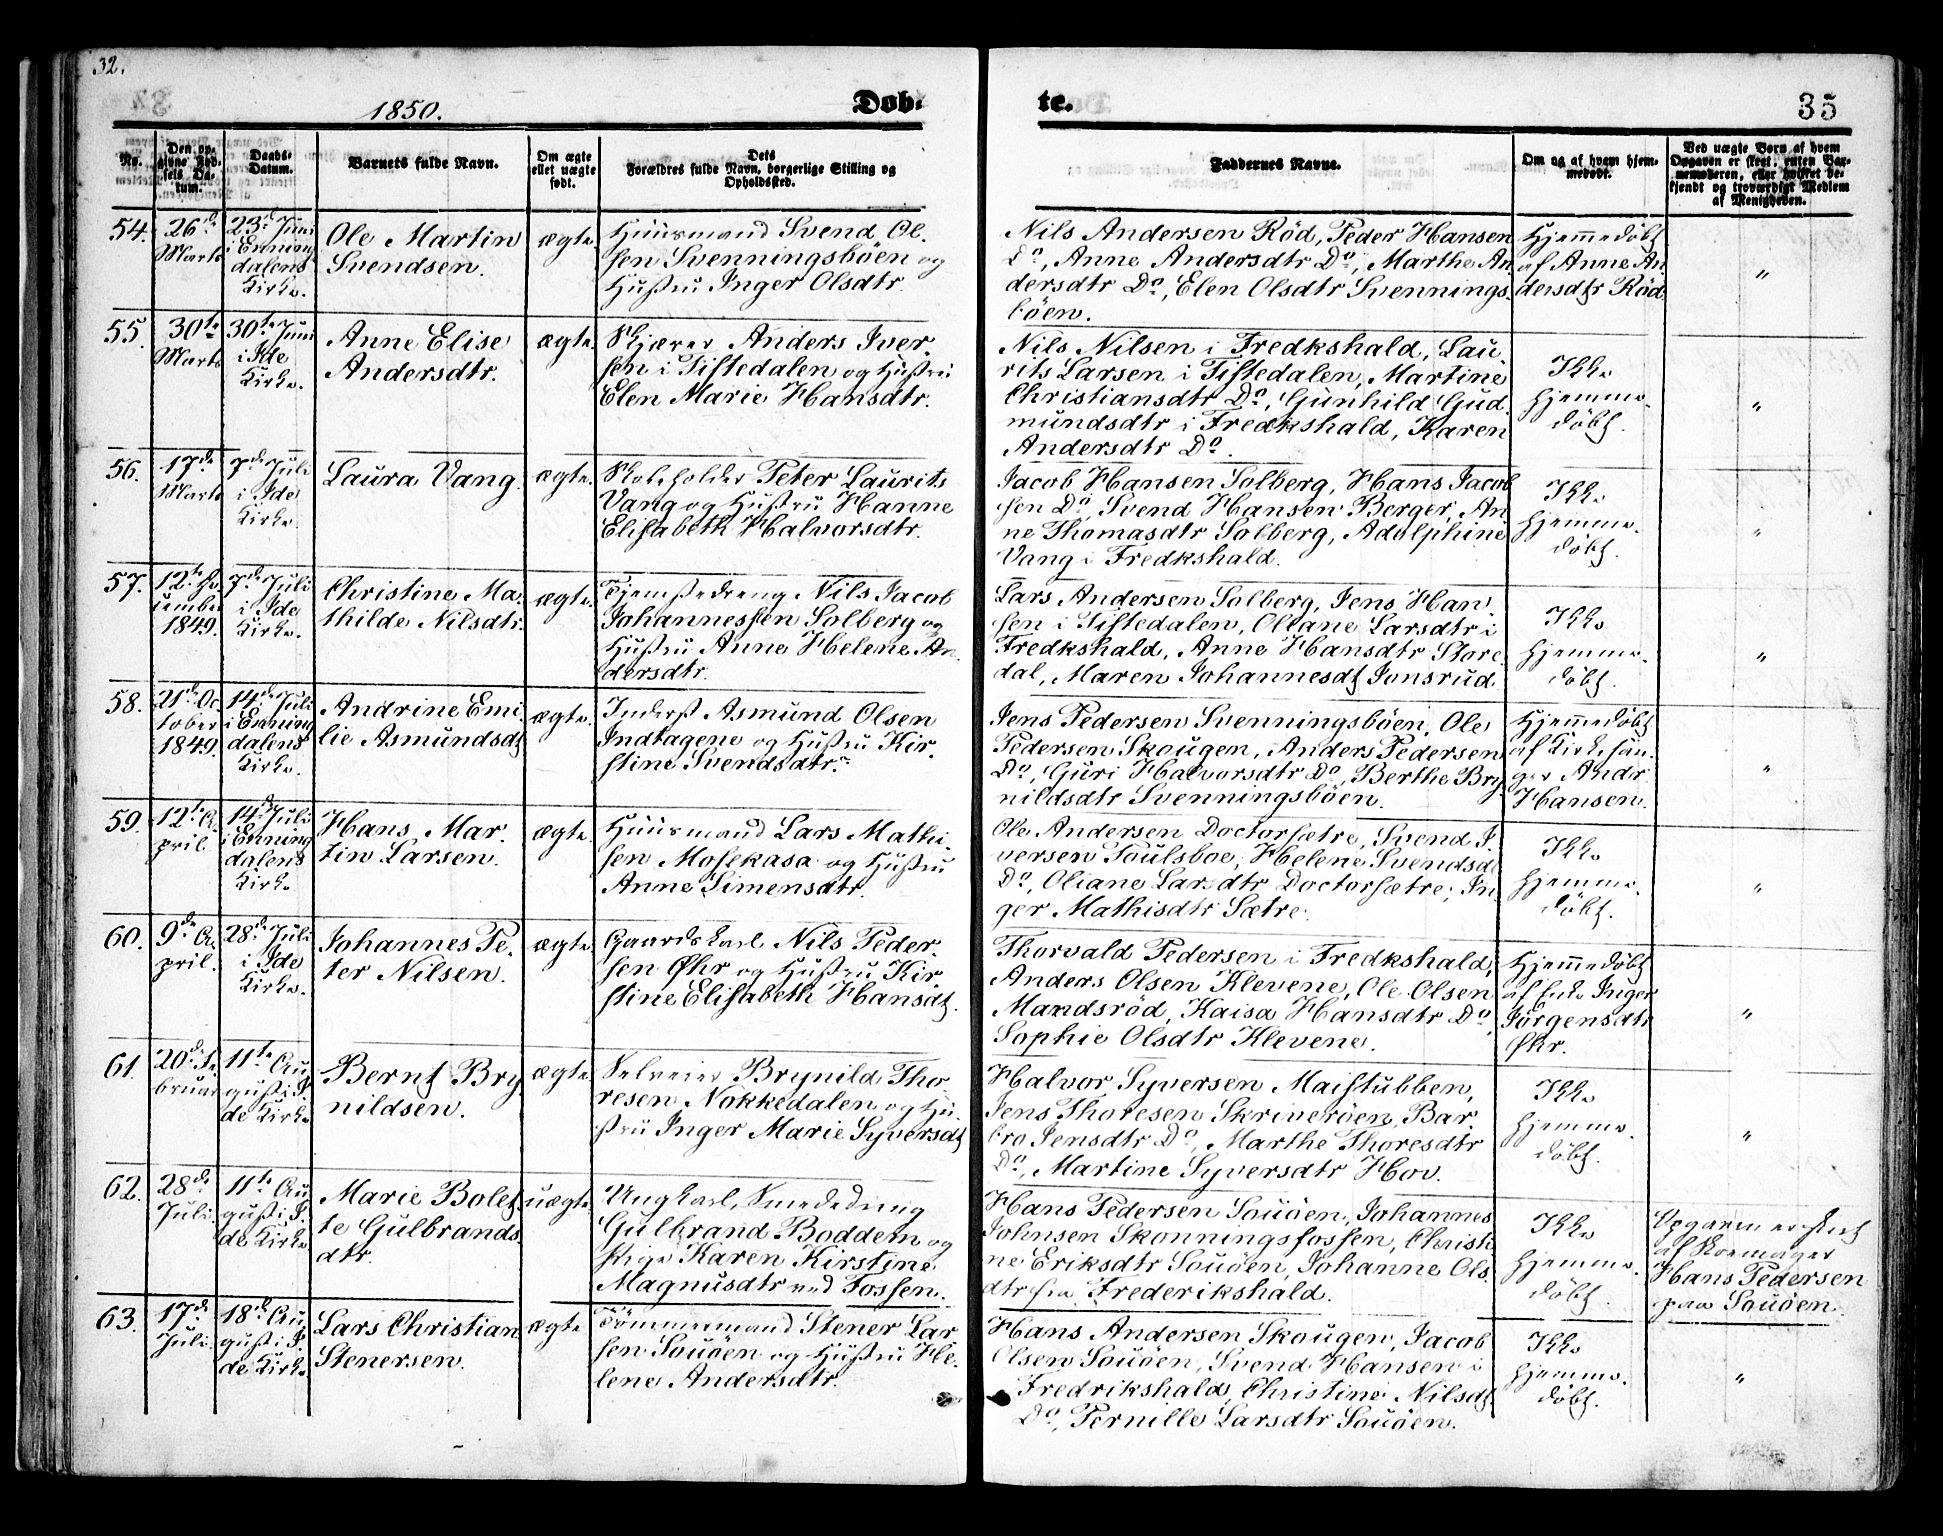 32.
1850.
Døb-
te.
35
No.
Den op-
givne Fød-
sels Da-
tum.
Daabs-
Datum.
Barnets fulde Navn.
Om ægte
eller uægte
født.
Dets
Forældres fulde Navn, borgerlige Stilling og
Opholdssted.
Faddernes Navne.
Om og af hvem hjem-
medøbt.
Ved uægte Børn af hvem
Opgaven er skeet, enten Bar-
nemoderen, eller hvilket be-
kjendt og troværdigt Medlem
af Menigheden.
54.
26de
Marts
23de Juni
i Enning
dalens
Kirke.
Ole Martin
Svendsen.
ægte.
Huusmand Svend Ol-
sen Svenningsbøen og
Hustru Inger Olsdtr.
Nils Andersen Röd, Peder Hansen
Do, Anne Andersdtr Do, Marthe An
dersdtr Do, Elen Olsdtr Svennings-
böen.
Hjemmedøbt
af Anne An
dersdtr Röd.
"
55.
30te
Marts
30te Juni
i Ide
Kirke.
Anne Elise
Andersdtr.
ægte.
Skjærer Anders Iver-
sen i Tistedalen og Hustru
Elen Marie Hansdtr.
Nils Nilsen i Fredkshald, Lau
rits Larsen i Tistedalen, Martine
Christiansdtr Do, Gunhild Gud
mundsdtr i Fredkshald, Karen
Andersdtr Do.
Ikke
hjemme-
døbt.
"
56.
17de
Marts
7de Juli
i Ide
Kirke.
Laura Vang.
ægte.
Peter Laurits
Vang og Hustru Hanne
Elisabeth Halvorsdtr.
Jacob Hansen Solberg, Hans Jacob
sen Do, Svend Hansen Berger, An
ne Thomasdtr Solberg, Adolphine
Vang i Fredkshald.
Ikke
hjemme-
døbt.
"
57.
12te No
vember
1849.
7de Juli
i Ide
Kirke.
Christine Ma-
thilde Nilsdtr.
ægte.
Tjenstedreng Nils Jacob
Johannessen Solberg og
Hustru Anne Helene An-
dersdtr.
Lars Andersen Solberg, Jens Han-
sen i Tistedalen, Oliane Larsdtr i
Fredkshald, Anne Hansdtr Store-
dal, Maren Johannesdt Jonsrud.
Ikke
hjemme-
døbt.
"
58.
21de Oc
tober
1849.
14de Juli
i Enning
dalens
Kirke.
Andrine Emi-
lie Asmundsdt
ægte.
Inderst Asmund Olsen
Indtagene og Hustru Kir-
stine Svendsdtr.
Jens Pedersen Svenningsböen, Ole
Pedersen Skougen, Anders Pedersen
Do, Guri Halvorsdtr Do, Berthe Bry
nildsdtr Svenningsböen.
Hjemmedøbt
af Kirkesan-
ger Andr.
Hansen.
"
59.
12te A-
pril.
14de Juli
i Enning
dalens
Kirke
Hans Mar-
tin Larsen.
ægte.
Huusmand Lars Mathi-
sen Mosekasa og Hustru
Anne Simensdtr.
Ole Andersen Doctorsætre, Svend I-
versen Poulsboe, Helene Svendsdt
Do, Oliane Larsdtr Doctorsætre, In
ger Mathisdtr Sætre.
Ikke
hjemme-
døbt.
"
60.
9de A-
pril.
28de Juli
i Ide
Kirke.
Johannes Pe-
ter Nilsen.
ægte.
Gaardskarl Nils Peder-
sen Øhr og Hustru Kir-
stine Elisabeth Hansdt.
Thorvald Pedersen i Fredkshald,
Anders Olsen Klevene, Ole Olsen
Mandsröd, Kaisa Hansdtr Do,
Sophie Olsdtr Klevene.
Hjemmedøbt
af Enke Inger
Jörgensdtr
Øhr.
"
61.
20de Fe
bruar
11te Au
gust i I-
de Kirke
Bernt Bry
nildsen.
ægte.
Selveier Brynild Tho-
resen Nokkedalen og Hu-
stru Inger Marie Syversdt
Halvor Syversen Maistubben,
Jens Thoresen Skriveröen, Bar-
bro Jensdtr Do, Marthe Thoresdtr
Do, Martine Syversdtr Hov.
Ikke
hjemme-
døbt.
"
62.
28de
Juli.
11te Au
gust i I-
de Kirke
Marie Bolet-
te Gulbrands-
dtr.
uægte.
Ungkarl, Smededreng
Gulbrand Boddem og
Pige Karen Kirstine
Magnusdtr ved Fossen.
Hans Pedersen Souöen, Johannes
Johnsen Skonningsfossen, Christi
ne Eriksdtr Souöen, Johanne Ols-
dtr fra Frederikshald.
Ikke
hjemme-
døbt.
Opgaven er skeet
af Skomager
Hans Pedersen
paa Souöen.
63.
17de
Juli.
18de Au
gust i I-
de Kirke
Lars Christian
Stenersen.
ægte
Tömmermand Stener Lar-
sen Souöen og Hustru He-
lene Andersdtr.
Hans Andersen Skougen, Jacob
Olsen Souöen, Svend Hansen i
Fredrikshald, Christine Nilsdt.
Do, Pernille Larsdtr Souöen.
Ikke
hjemme-
døbt.
"